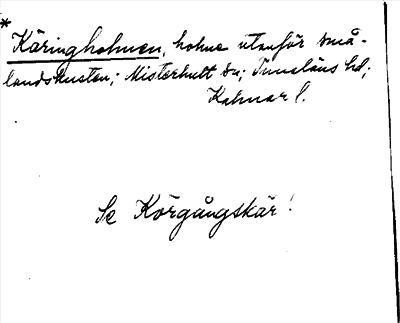 *
Käringholmen, holme utanför små-
landskusten; Misterhult sn; Tunaläns hd;
Kalmar l.
Se Körgångskär!